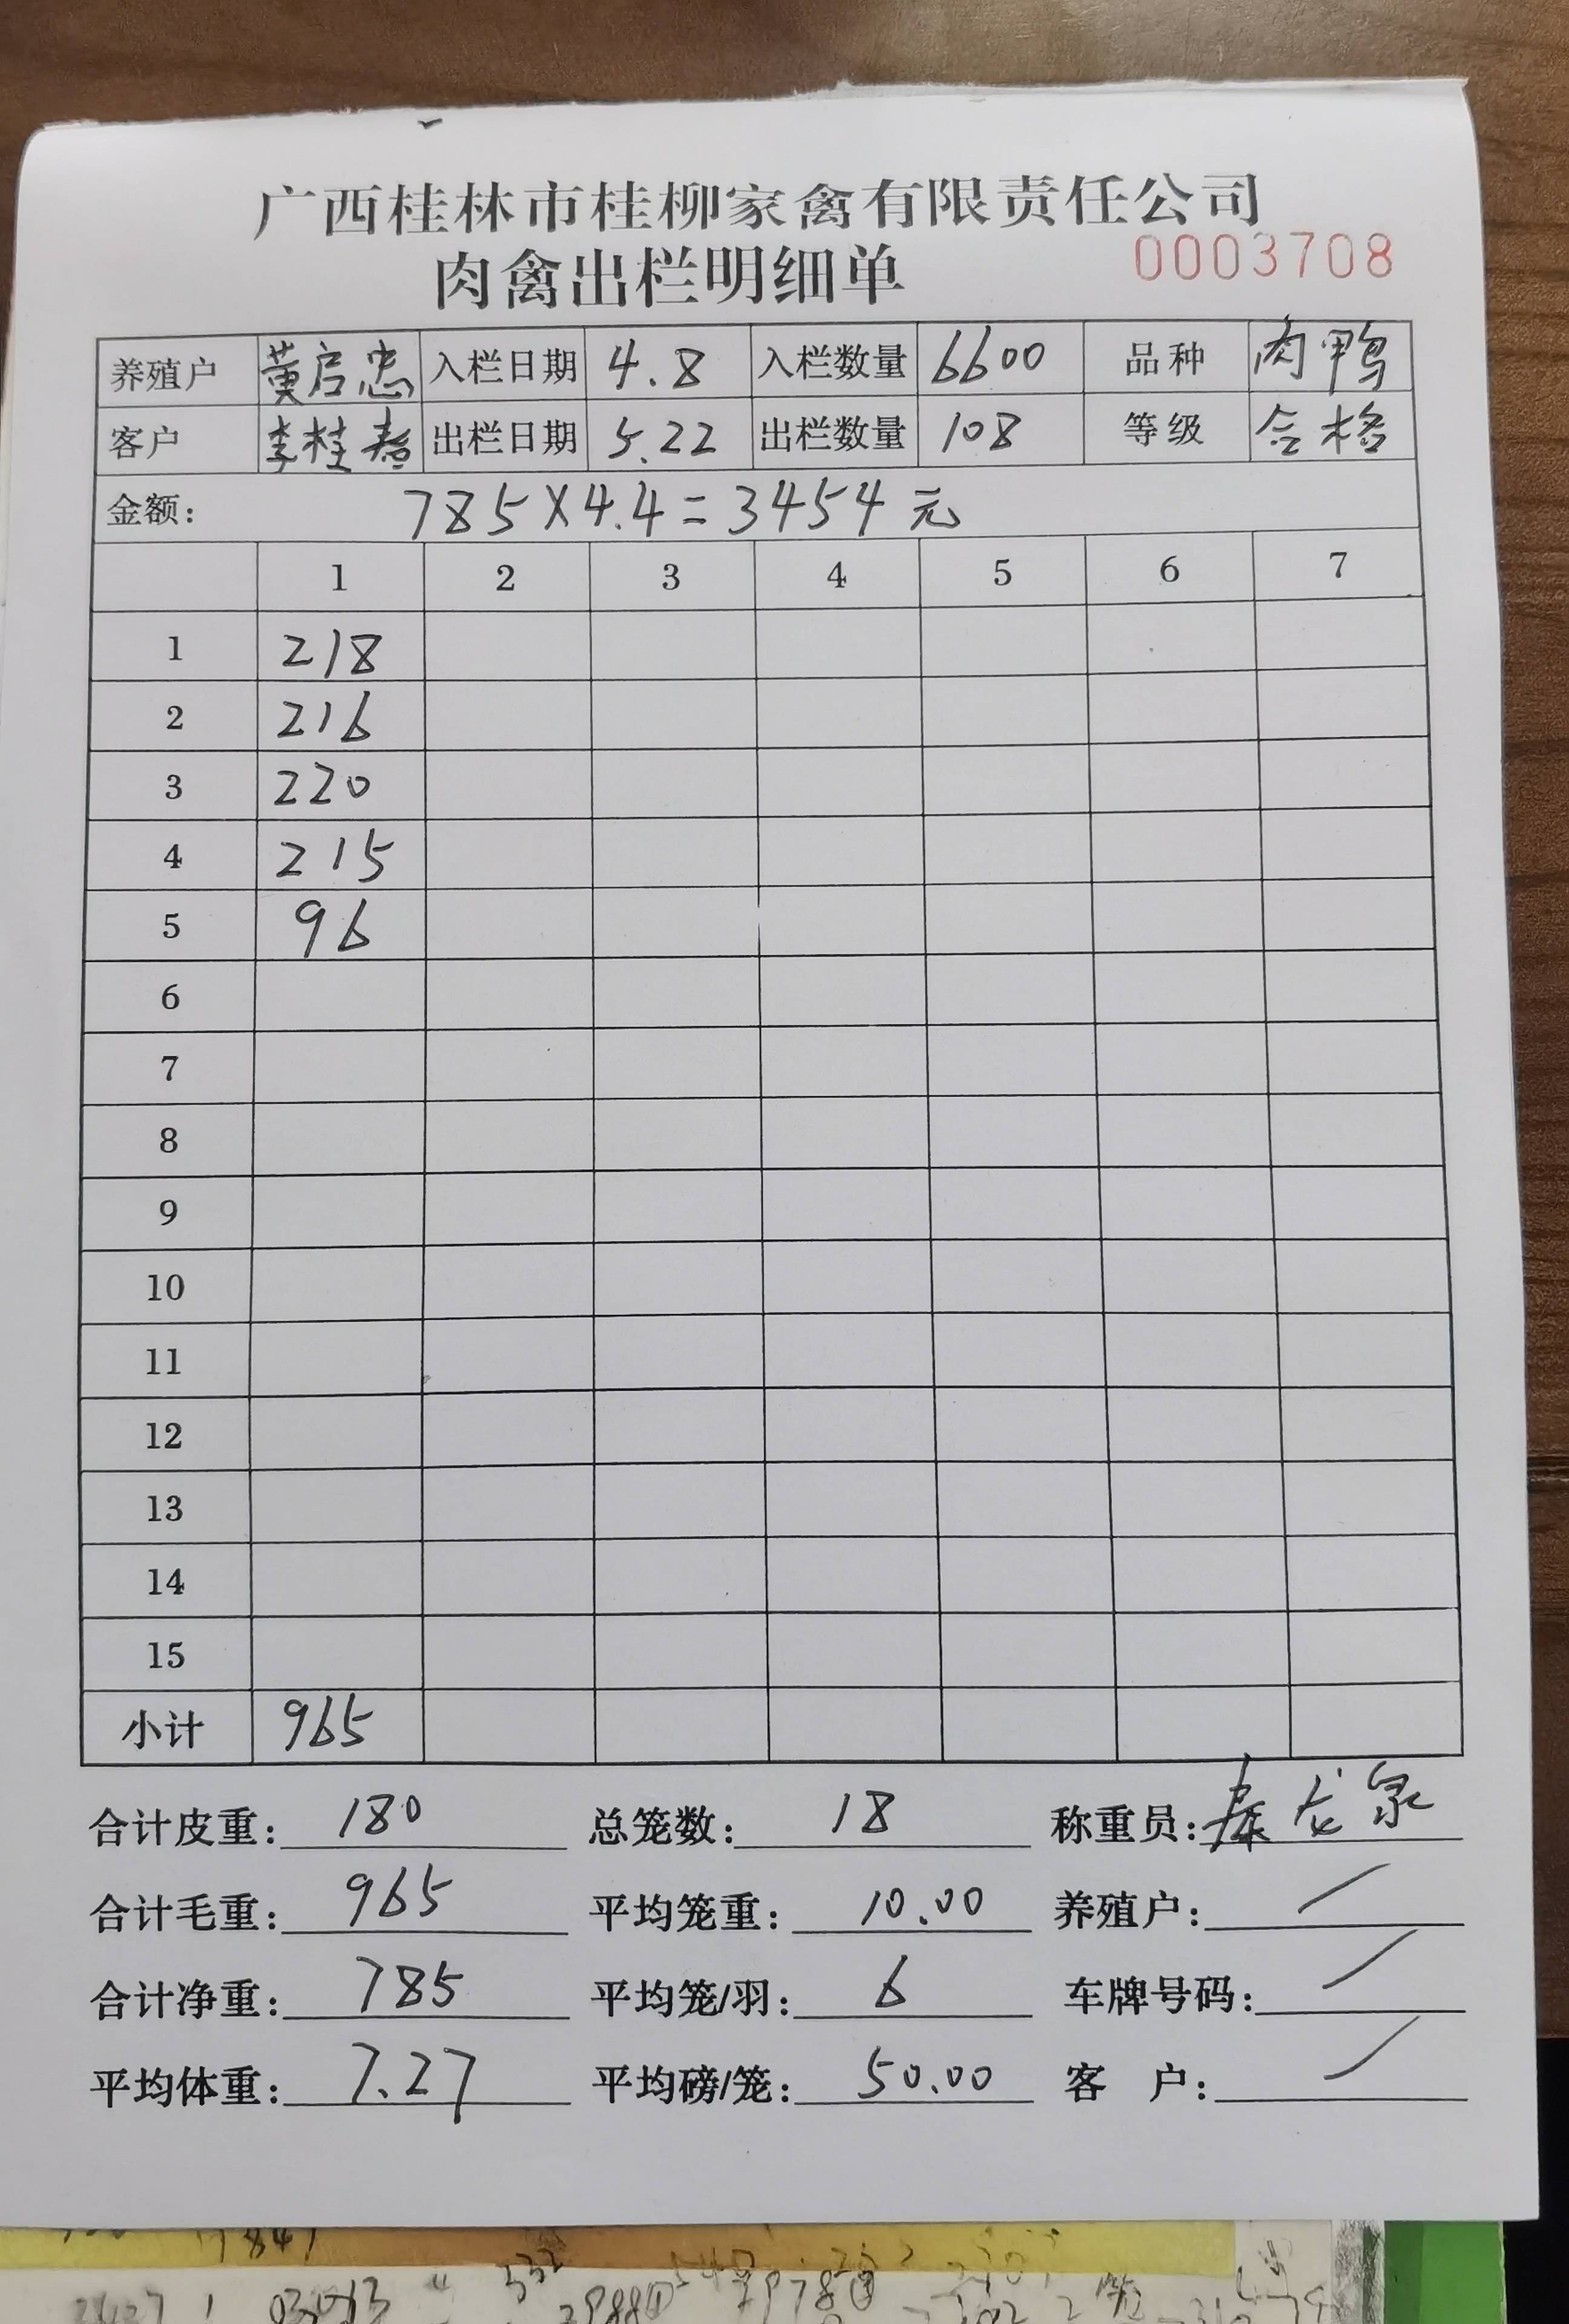 广西桂林市桂柳家禽有限责任公司
肉禽出栏明细单 0003708
养殖户 黄启忠 入栏日期 4.8 入栏数量 6600 品种 肉鸭
客户 李桂 出栏日期 5.22 出栏数量 108 等级 合格
金额: 785×4.4=3454元
1 2 3 4 5 6 7
1 218
2 216
3 220
4 215
5 96
6
7
8
9
10
11
12
13
14
15
小计 965
合计皮重: 180 总笼数: 18 称重员: 秦龙泉
合计毛重: 965 平均笼重: 10.00 养殖户: /
合计净重: 785 平均笼/羽: 6 车牌号码: /
平均体重: 7.27 平均磅/笼: 50.00 客 户: /